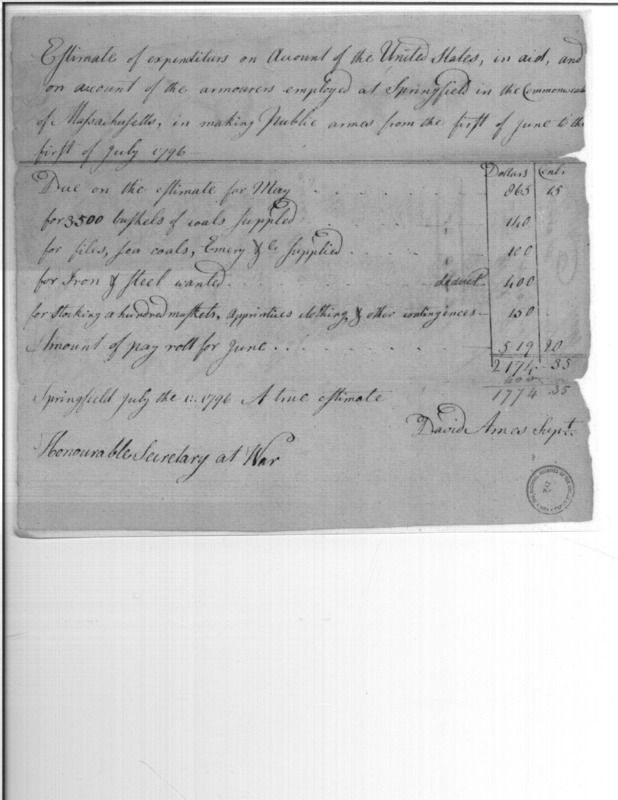 Estimate of expenditurs on Account of the United States, in aid, and
on account of the armourers employed at Springfield in the Commonwealth
of Massachusetts, in making Public armes from the first of June to the
first of July 1796
Dollars Cents
Due on the estimate for May 865 15
for 3500 bushels of coals Suppled 140
for files, sea coals, Emery &c Supplied 100
for Iron & Steel wanted deduct 400
for Stocking a hundred muskets, Apprintices clothing, & other contingences 150
Amount of pay roll for June 519 20
2174 35
400
1774 35
Springfield July the 1: 1796 A true estimate
David Ames Supt.
Honourable Secretary at War